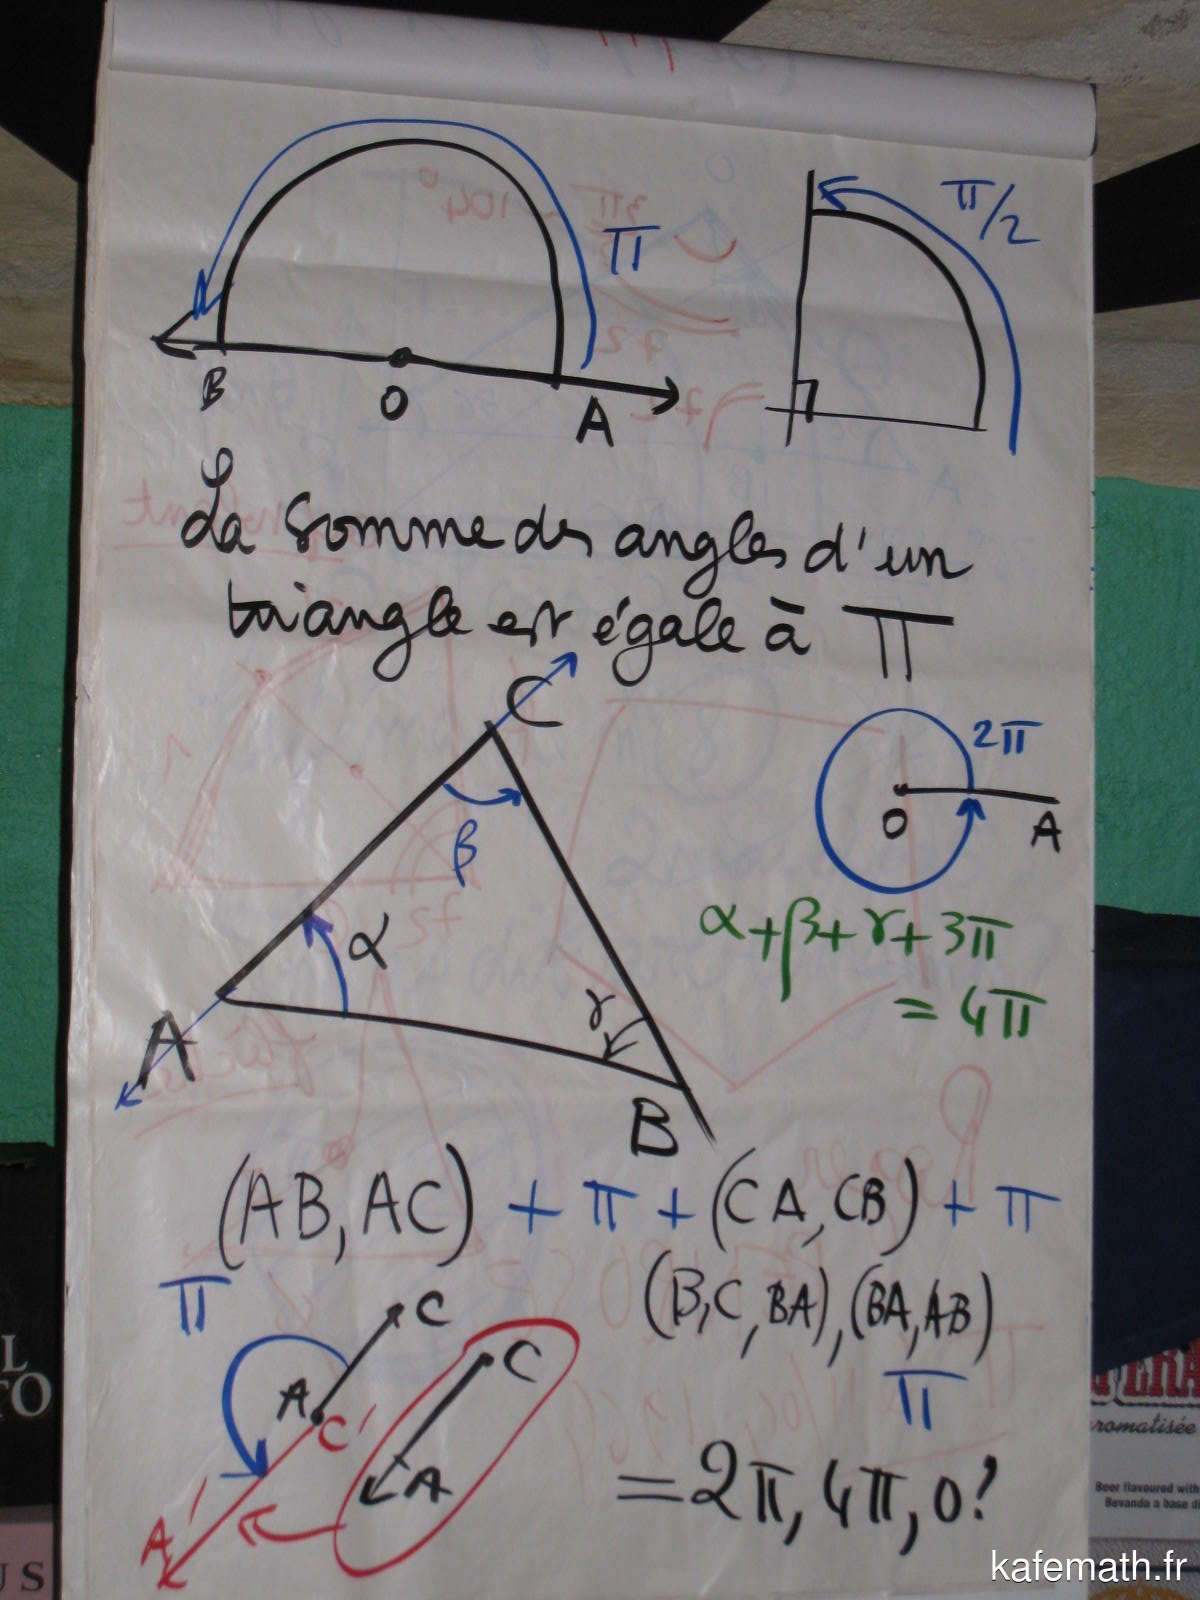 π
π/2
B
O
A
La somme des angles d'un
triangle est égale à π
C
2π
O
A
β
α
α+β+γ+3π
= 4π
γ
A
B
(AB, AC) + π + (CA, CB) + π
(B,C, BA), (BA, AB)
π
π
C
A
C'
C
A
A'
= 2π, 4π, 0?
TO
US
romatisée
Beer flavoured with
Bevanda a base di
kafemath.fr